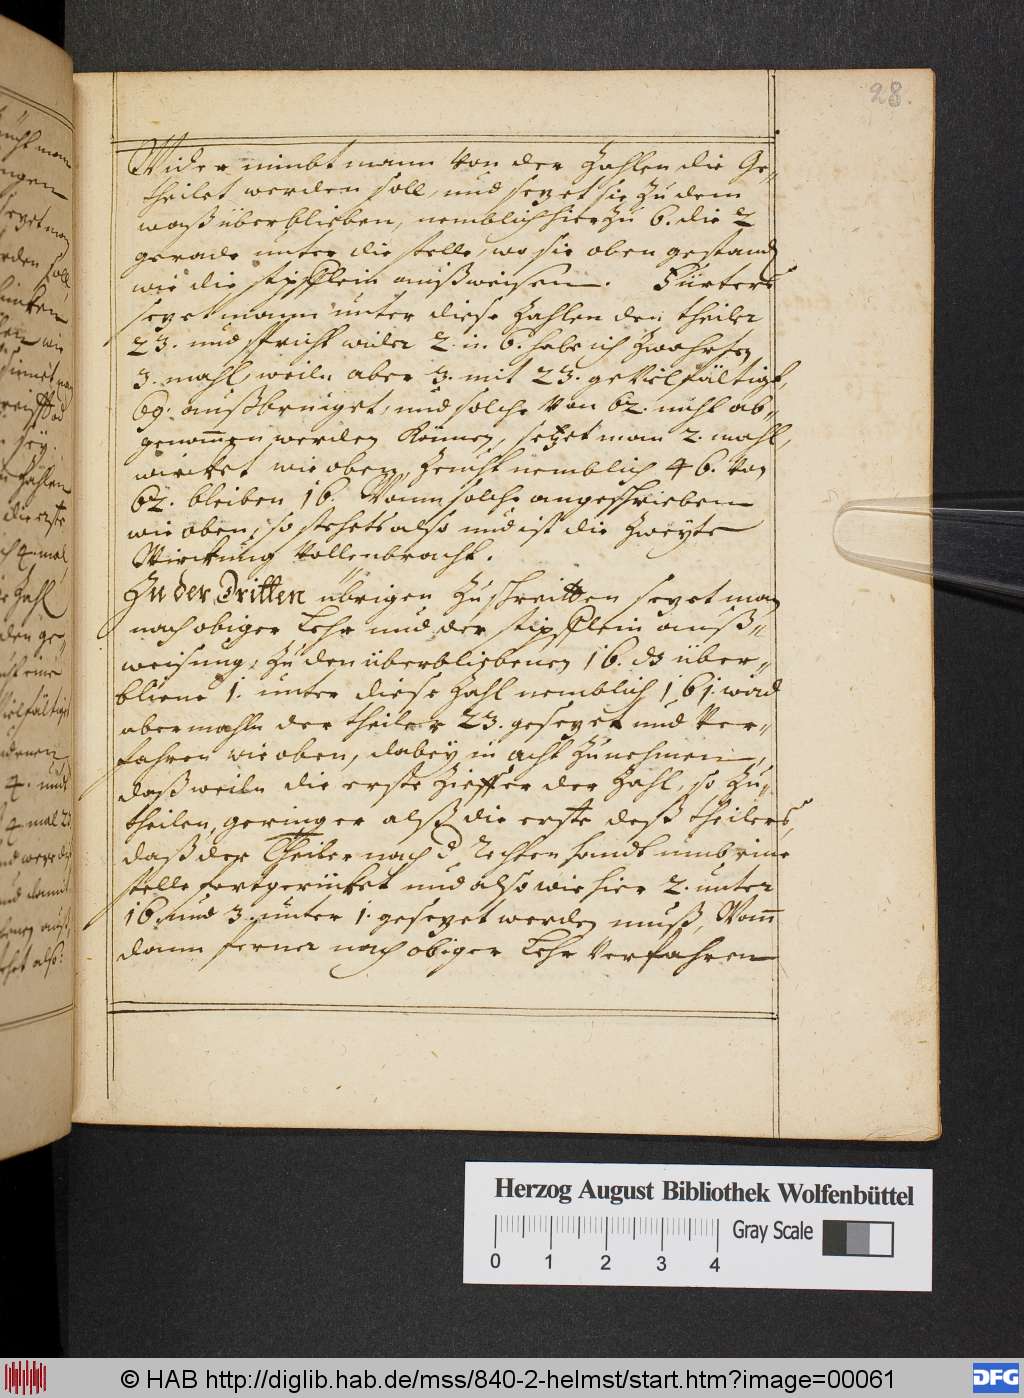 28.
Wider nimbt mann von der Zahlen die Ge„
theilet werden soll, und sezet sie zu dem
waß überblieben, nemblich hier zu 6. die 2
gerade unter die stelle, wo sie oben gestand
wie die stipfflein außweisen. Fürters
sezet mann unter diese Zahlen den theiler
23. und spricht wider 2. in 6. habe ich zwahr
3. mahl, weiln aber 3. mit 23. gevielfältigt,
69. außbringet, und solche von 62. nicht ab„
genommen werden können, setzet man 2. mahl,
wircket wie oben, zeucht nemblich 46. von
62. bleiben 16. Wann solche angeschrieben
wie oben, so stehets also und ist die zweyte
Wirckung vollenbracht.
Zu der Dritten übrigen zu schreitten sezet man
nach obiger Lehr und der stipfflein auß„
weisung, zu den überbliebenen 16. ds über„
bliene 1. unter diese Zahl nemblich 161. wird
abermahln der theiler 23. gesezet und Ver„
fahren wie oben, dabey in acht zunehmen,
daß weiln die erste Zieffer der Zahl, so zu„
theilen, geringer alß die erste deß theilers,
daß der Theiler nach d rechten handt umb eine
stelle fortgerücket und also wie hier 2. unter
16. und 3. unter 1. gesezet werden muß, Wann
dann ferner nach obiger Lehr verfahren
Herzog August Bibliothek Wolfenbüttel
Gray Scale
0 1 2 3 4
© HAB http://diglib.hab.de/mss/840-2-helmst/start.htm?image=00061
DFG